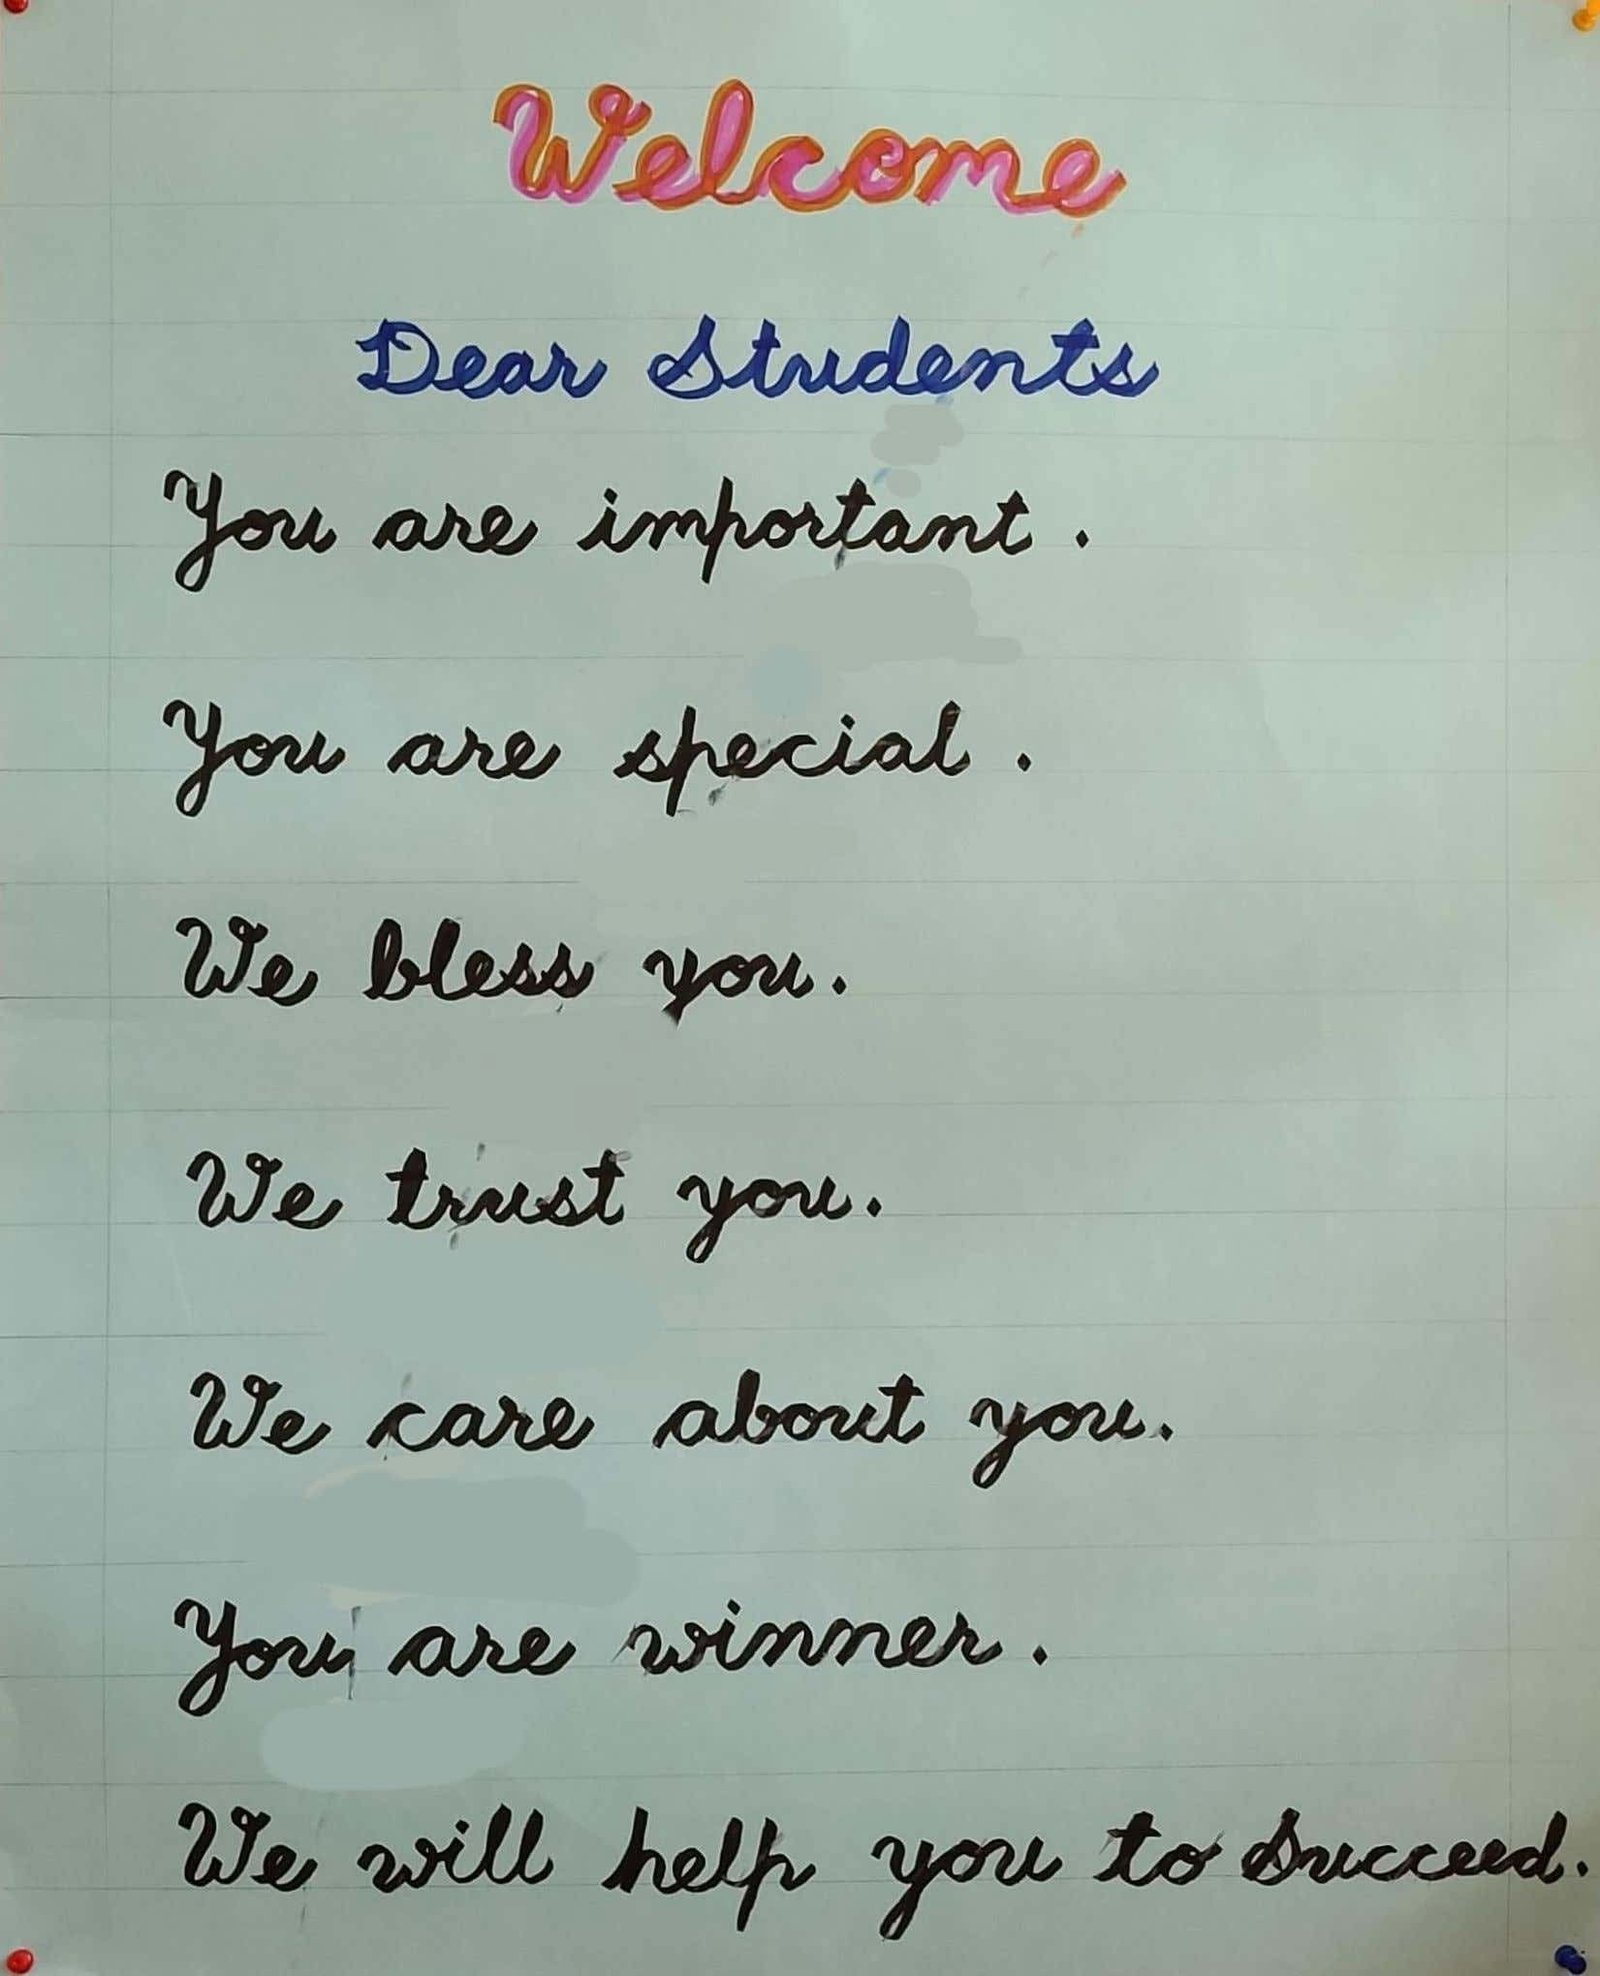 Welcome
Dear Students
You are important.
You are special.
We bless you.
We trust you.
We care about you.
You are winner.
We will help you to Succeed.